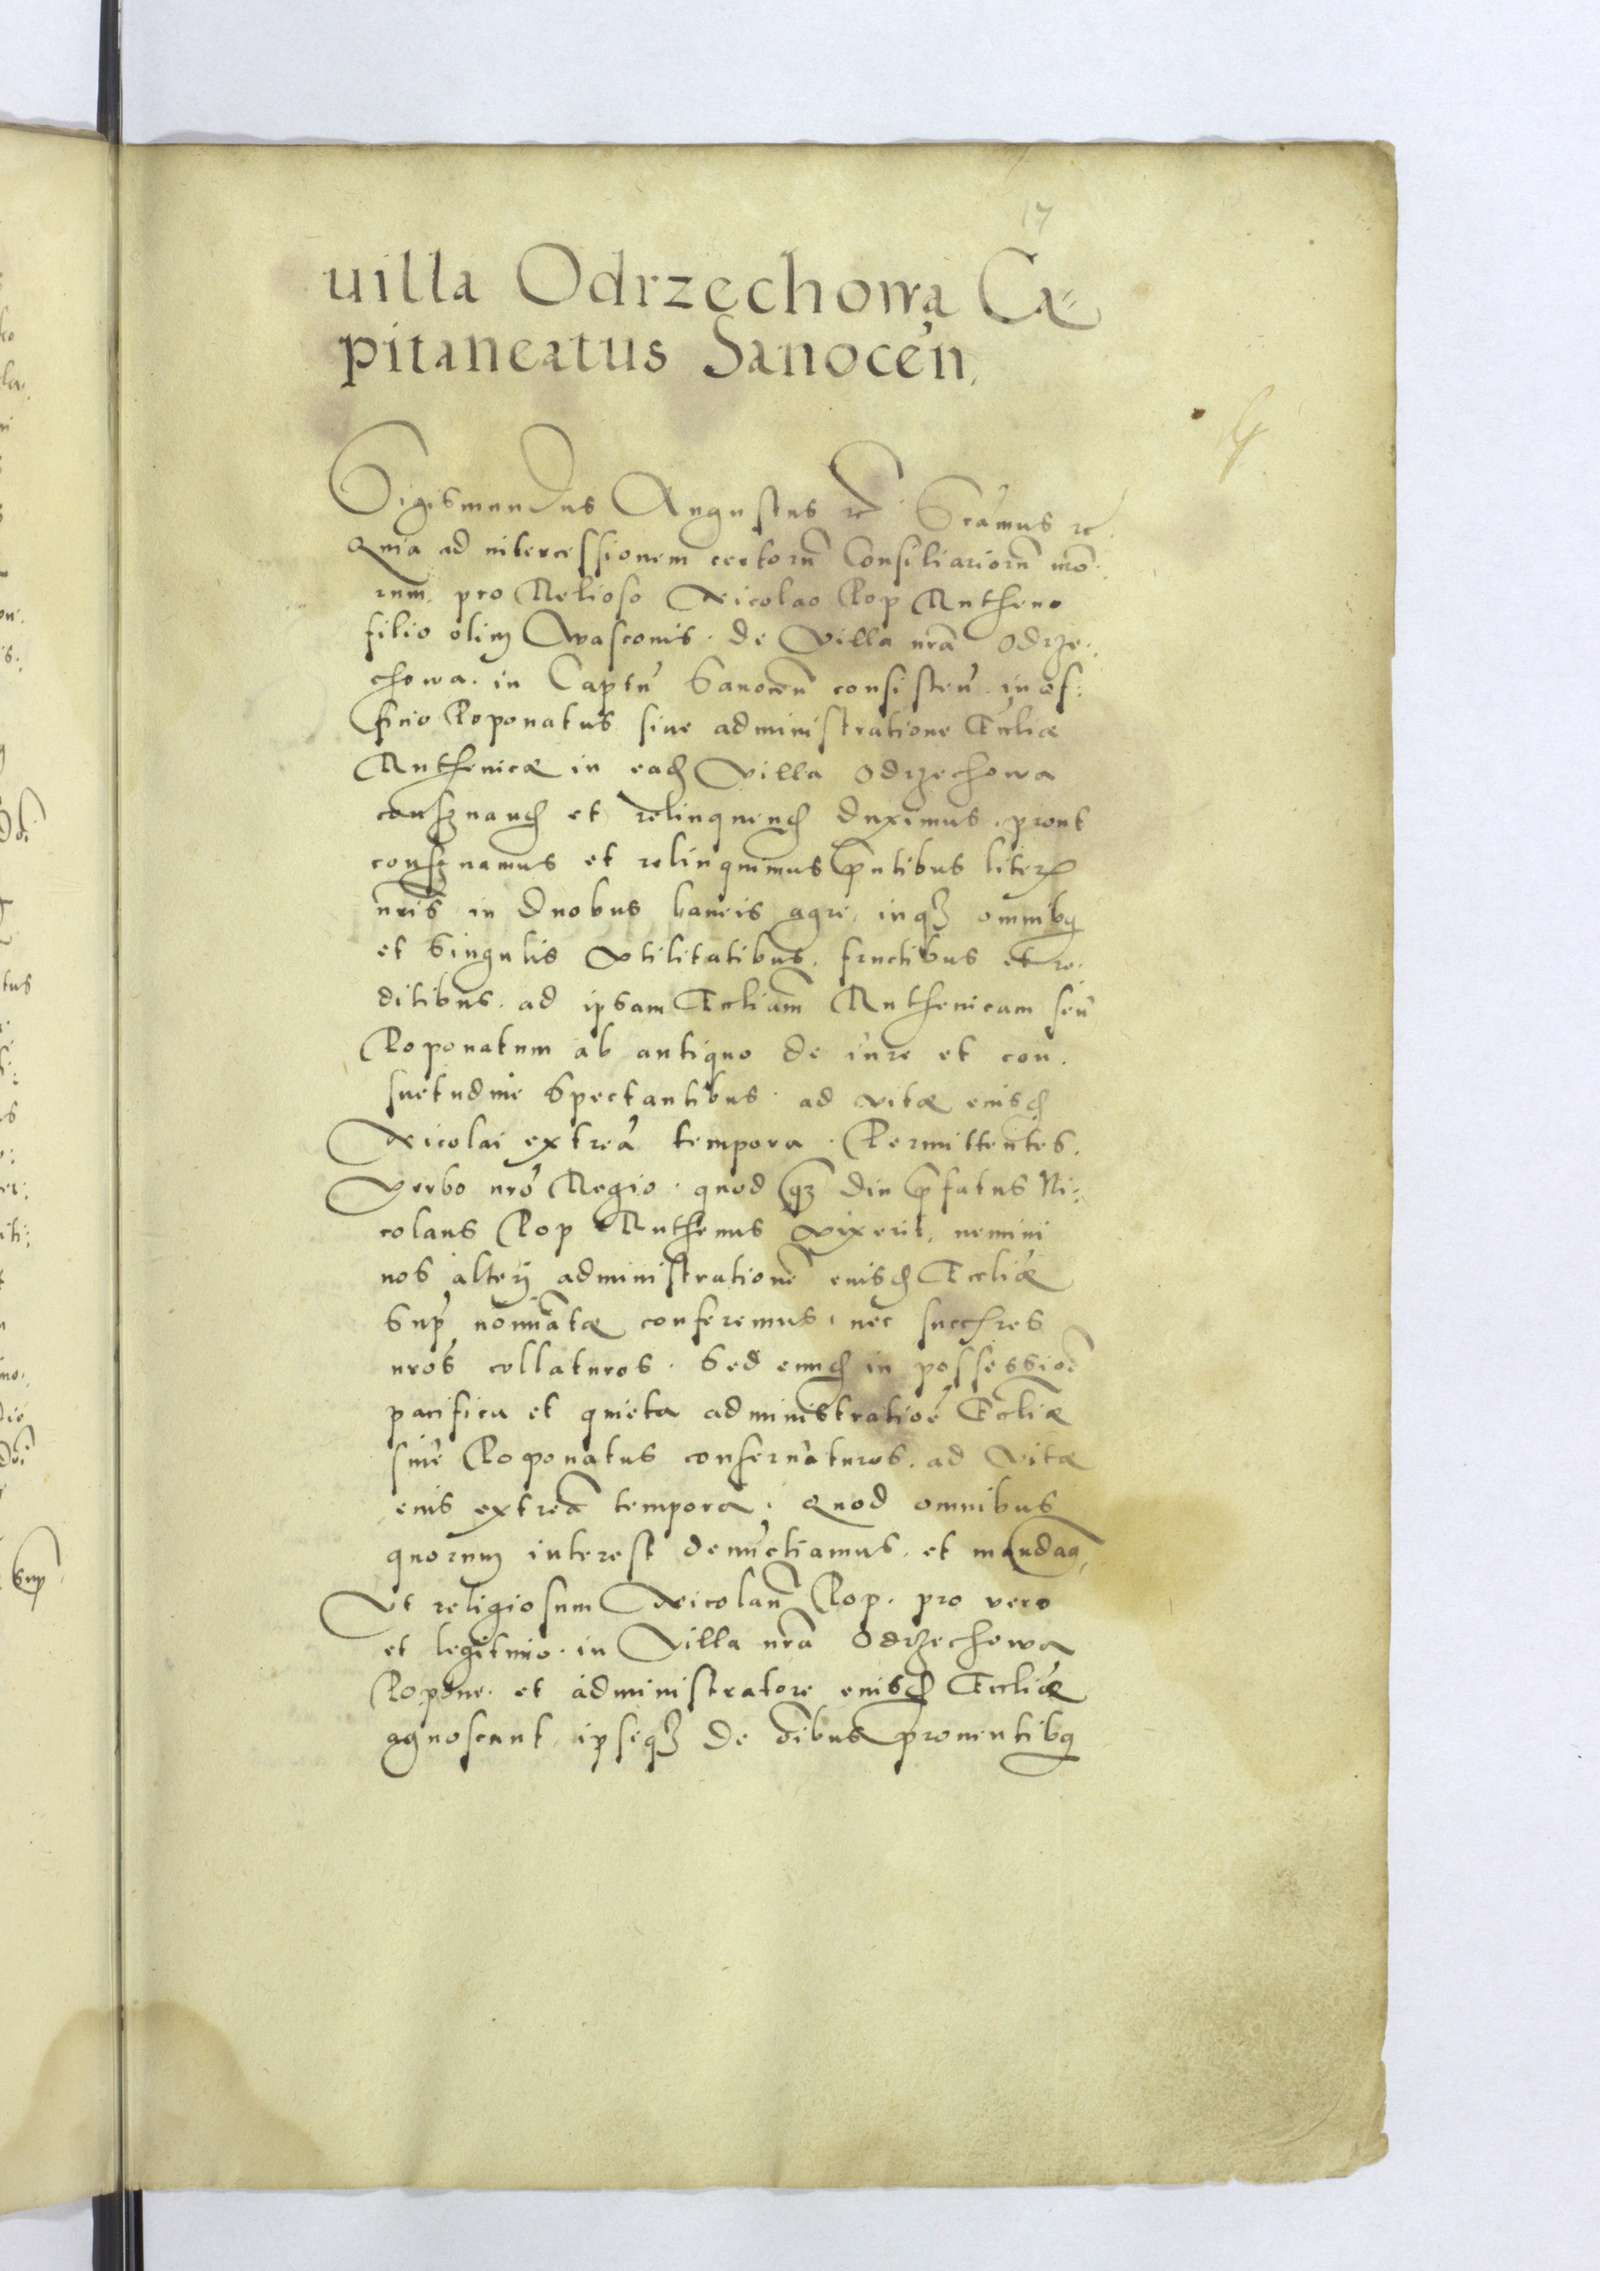 17
uilla Odrzechowa Ca⸗
pitaneatus Sanoceń.
Sigismundus Augustus rc Scamus rc
Quia ad intercessionem certorū Consiliariorū nrō⸗
rum, pro Relioso Nicolao Pop Rutheno
filio olim Wasconis. de Villa nrā Odrze⸗
chowa. in Captū Sanoceń consisteń. in of⸗
ficio Poponatus siue administratione Eccliæ
Ruthenicæ in ead Villa Odrzechowa
conseruand et relinquend duximus. prout
conseruamus et relinquimus pntibus literis
nris in duobus laneis agri, inqz omnibq
et singulis vtilitatibus. fructibus et re⸗
ditibus. ad ipsam Eccliam Ruthenicam seu
Poponatum ab antiquo de iure et con⸗
suetudine spectantibus. ad vitæ eiusd
Nicolai extrēa tempora. Permittentes.
Verbo nrō Regio. quod qz diu pfatus Ni⸗
colaus Pop Ruthenus vixerit, nemini
nos alteri administrationē eiusd Eccliæ
sup nominātæ conferemus, nec succĥres
nrōs collaturos. Sed eund in possessioē
pacifica et quieta administratioē Eccliæ
siue Poponatus conseruaturos. ad vitæ
eius extrēa tempora. Quod omnibus
quorum interest denuctiamus. et mandaq,
Vt religiosum Nicolaū Pop. pro vero
et legitimo. in Villa nrā Odrzechowa
Popone. et administratore eiusd Eccliæ
agnoscant, ipseqz de oībus prouentibq